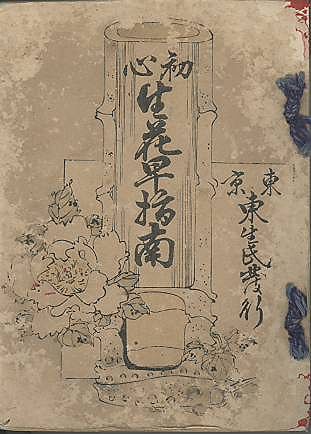 初心
生花早指南
東京
東生民發行